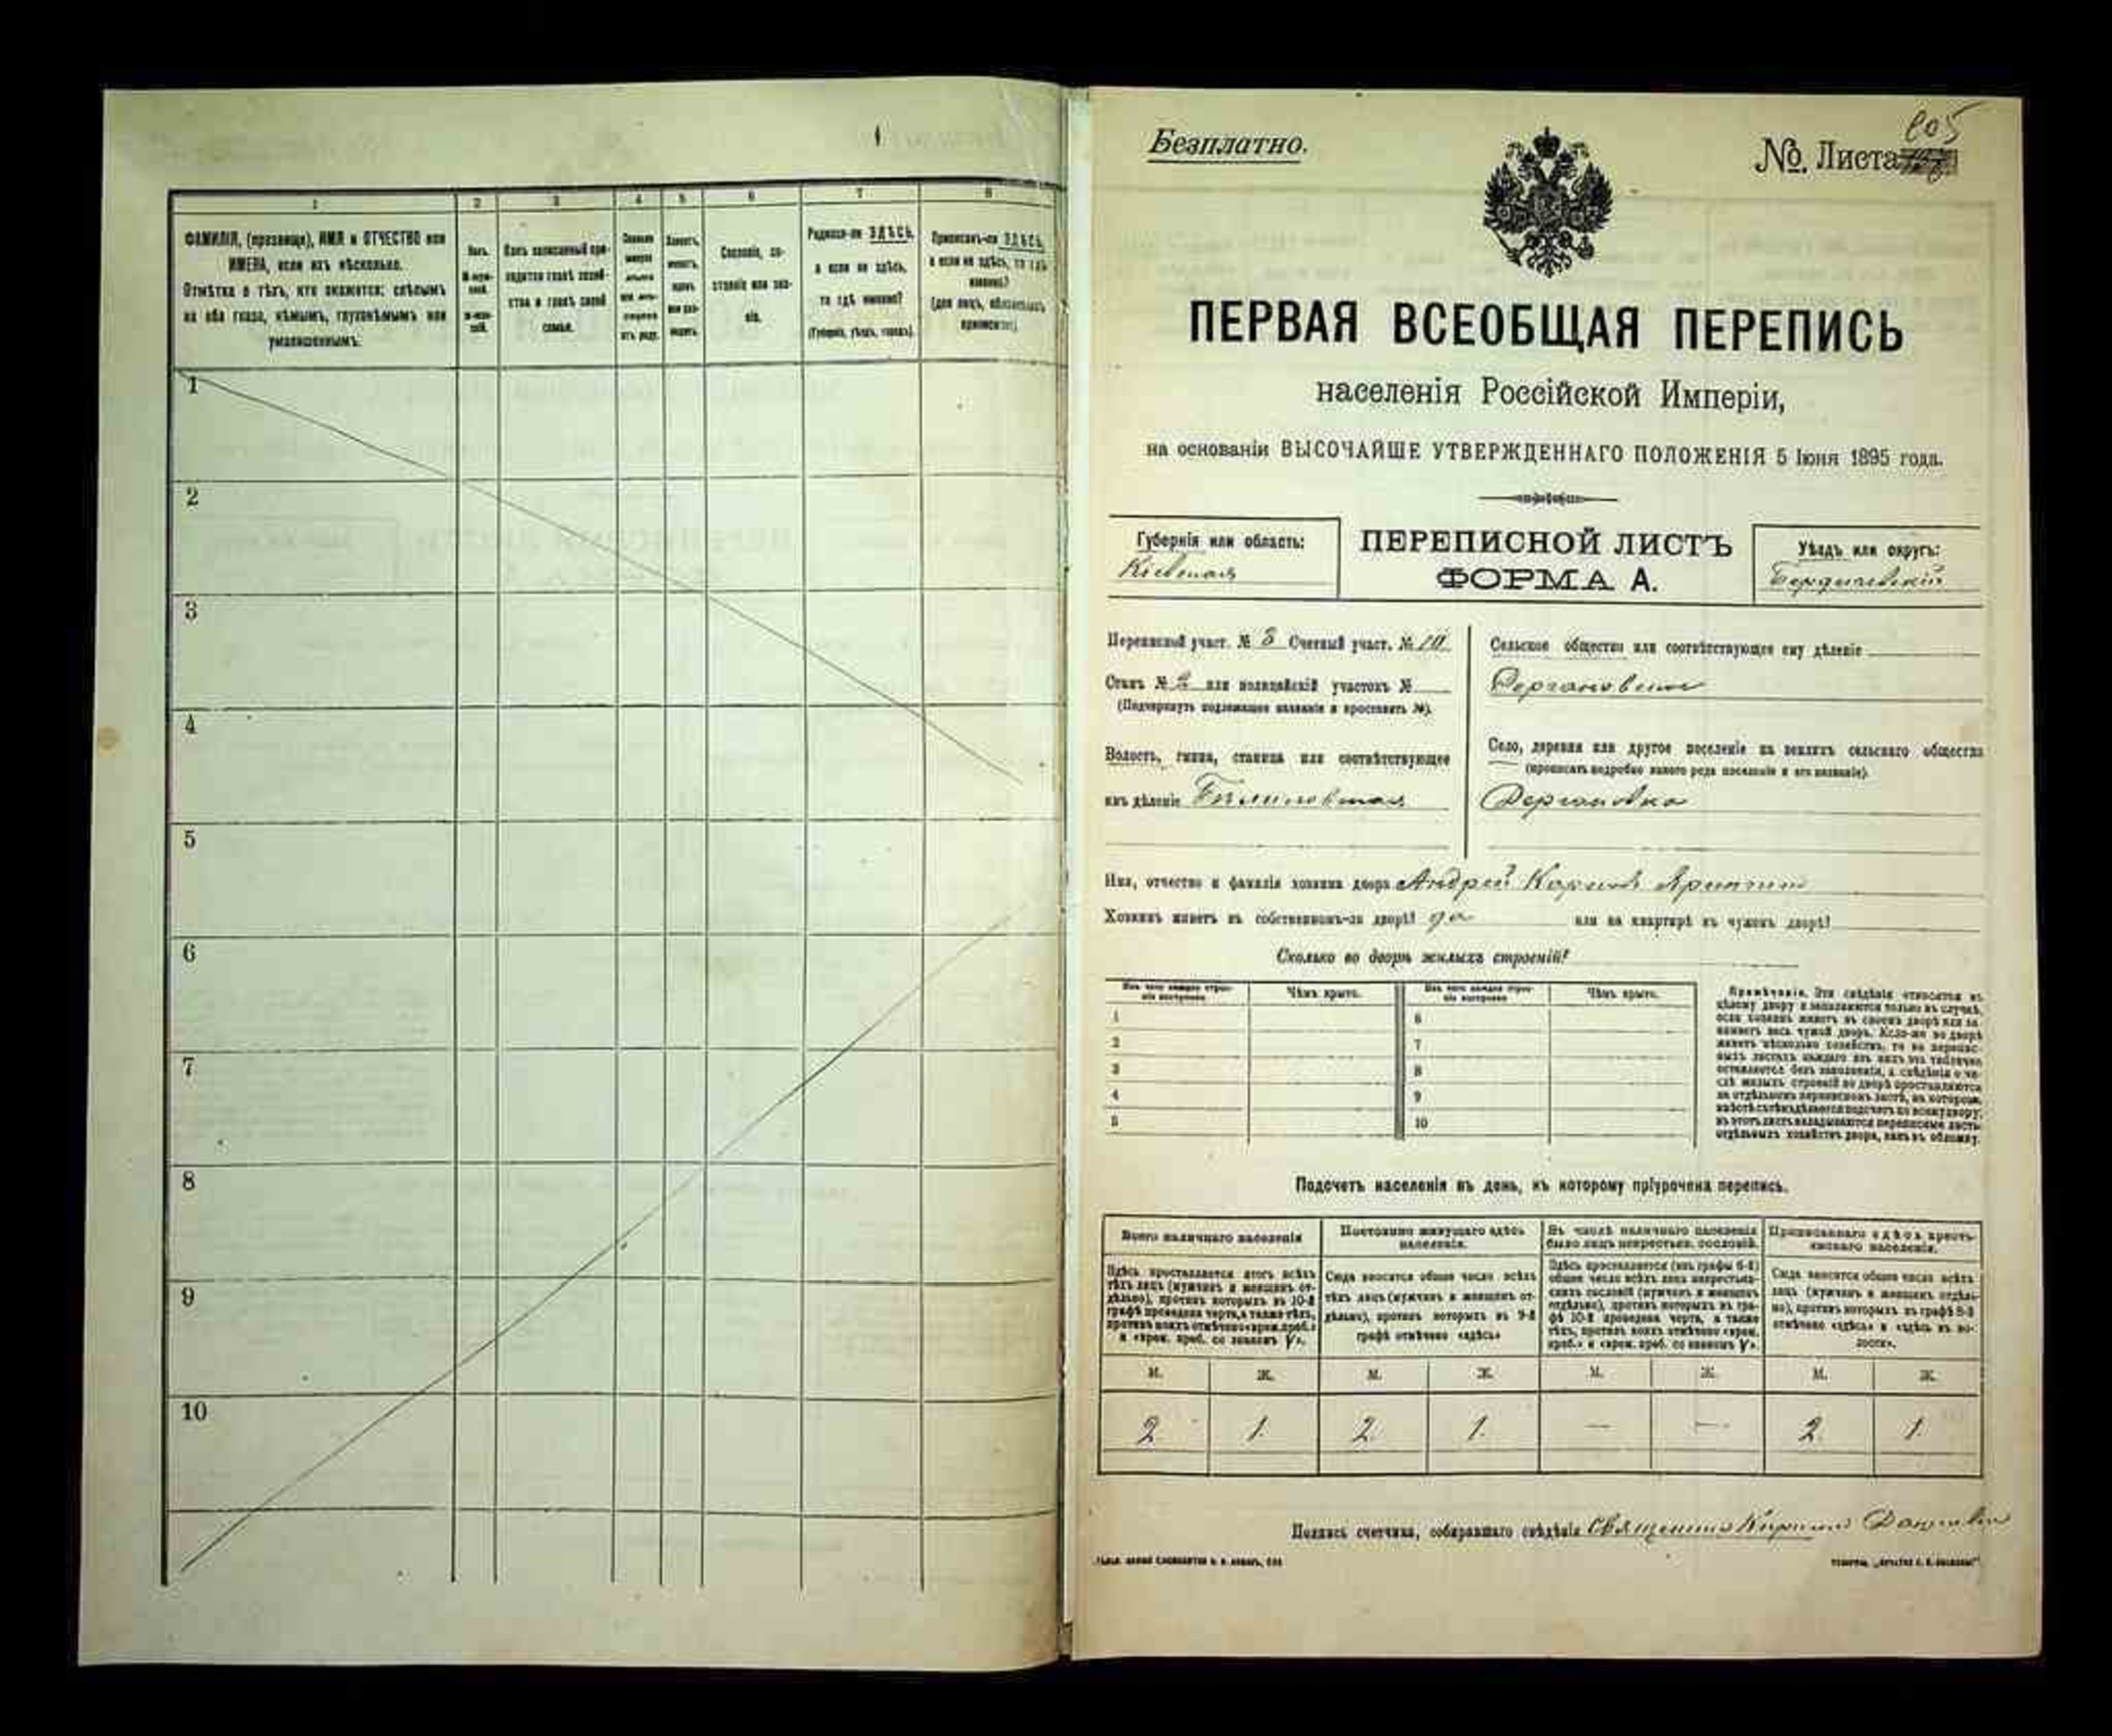 1 2 3 4 5 6 7 8
ФАМИЛІЯ, (прозвище), ИМЯ и ОТЧЕСТВО или
ИМЕНА, если ихъ нѣсколько.
Отмѣтка о тѣхъ, кто окажется: слѣпымъ
на оба глаза, нѣмымъ, глухонѣмымъ или
умалишеннымъ.
Полъ.
Какъ записанный при-
ходится главѣ хозяй-
ства и главѣ своей
семьи.
Сословіе, со-
стояніе или зва-
ніе.
Родился-ли ЗДѢСЬ,
а если не здѣсь,
то гдѣ именно?
(Губернія, уѣздъ, городъ).
Приписанъ-ли ЗДѢСЬ,
а если не здѣсь, то гдѣ
именно?
(для лицъ, обязанныхъ
припиской).
1
2
3
4
5
6
7
8
9
10
Безплатно.
№ Листа
605
ПЕРВАЯ ВСЕОБЩАЯ ПЕРЕПИСЬ
населенія Россійской Имперіи,
на основаніи ВЫСОЧАЙШЕ УТВЕРЖДЕННАГО ПОЛОЖЕНІЯ 5 Іюня 1895 года.
Губернія или область:
Кіевская
ПЕРЕПИСНОЙ ЛИСТЪ
ФОРМА А.
Уѣздъ или округъ:
Бердичевскій
Переписной участ. № 3 Счетный участ. № 10
Станъ № 2 или полицейскій участокъ №
(Подчеркнуть подлежащее названіе и проставить №).
Волость, гмина, станица или соотвѣтствующее
имъ дѣленіе Бѣлиловская
Сельское общество или соотвѣтствующее ему дѣленіе
Дергановское
Село, деревня или другое поселеніе на земляхъ сельскаго общества
(прописать подробно какого рода поселеніе и его названіе).
Дергановка
Имя, отчество и фамилія хозяина двора Андрей
Хозяинъ живетъ въ собственномъ-ли дворѣ? да или на квартирѣ въ чужомъ дворѣ?
Сколько во дворѣ жилыхъ строеній?
Изъ чего каждое строе-
ніе построено
Чѣмъ крыто.
Изъ чего каждое строе-
ніе построено
Чѣмъ крыто.
1 6
2 7
3 8
4 9
5 10
Примѣчаніе. Эти свѣдѣнія относятся къ
цѣлому двору и заполняются только въ случаѣ,
если хозяинъ живетъ въ своемъ дворѣ или за-
нимаетъ весь чужой дворъ. Если-же во дворѣ
живетъ нѣсколько хозяйствъ, то на перепис-
ныхъ листахъ каждаго изъ нихъ эта табличка
оставляется безъ заполненія, а свѣдѣнія о чи-
слѣ жилыхъ строеній во дворѣ проставляются
на отдѣльномъ переписномъ листѣ, на которомъ
вмѣстѣ съ тѣмъ дѣлается подсчетъ по всему двору;
въ этотъ листъ вкладываются переписные листы
отдѣльныхъ хозяйствъ двора, какъ въ обложку.
Подсчетъ населенія въ день, къ которому пріурочена перепись.
Всего наличнаго населенія
Постоянно живущаго здѣсь
населенія.
Въ числѣ наличнаго населенія
было лицъ некрестьян. сословій.
Приписаннаго здѣсь кресть-
янскаго населенія.
Здѣсь проставляется итогъ всѣхъ
тѣхъ лицъ (мужчинъ и женщинъ от-
дѣльно), противъ которыхъ въ 10-й
графѣ проведена черта, а также тѣхъ,
противъ коихъ отмѣчено «врем. преб.»
и «врем. преб. со знакомъ V».
Сюда вносится общее число всѣхъ
тѣхъ лицъ (мужчинъ и женщинъ от-
дѣльно), противъ которыхъ въ 9-й
графѣ отмѣчено «здѣсь»
Здѣсь проставляется (изъ графы 6-й)
общее число всѣхъ лицъ некрестьян-
скихъ сословій (мужчинъ и женщинъ
отдѣльно), противъ которыхъ въ гра-
фѣ 10-й проведена черта, а также
тѣхъ, противъ коихъ отмѣчено «врем.
преб.» и «врем. преб. со знакомъ V».
Сюда вносится общее число всѣхъ
лицъ (мужчинъ и женщинъ отдѣль-
но), противъ которыхъ въ графѣ 8-й
отмѣчено «здѣсь» и «здѣсь въ во-
лости».
М. Ж. М. Ж. М. Ж. М. Ж.
2 1. 2. 1. — — 2. 1.
Подпись счетчика, собиравшаго свѣдѣнія Священникъ